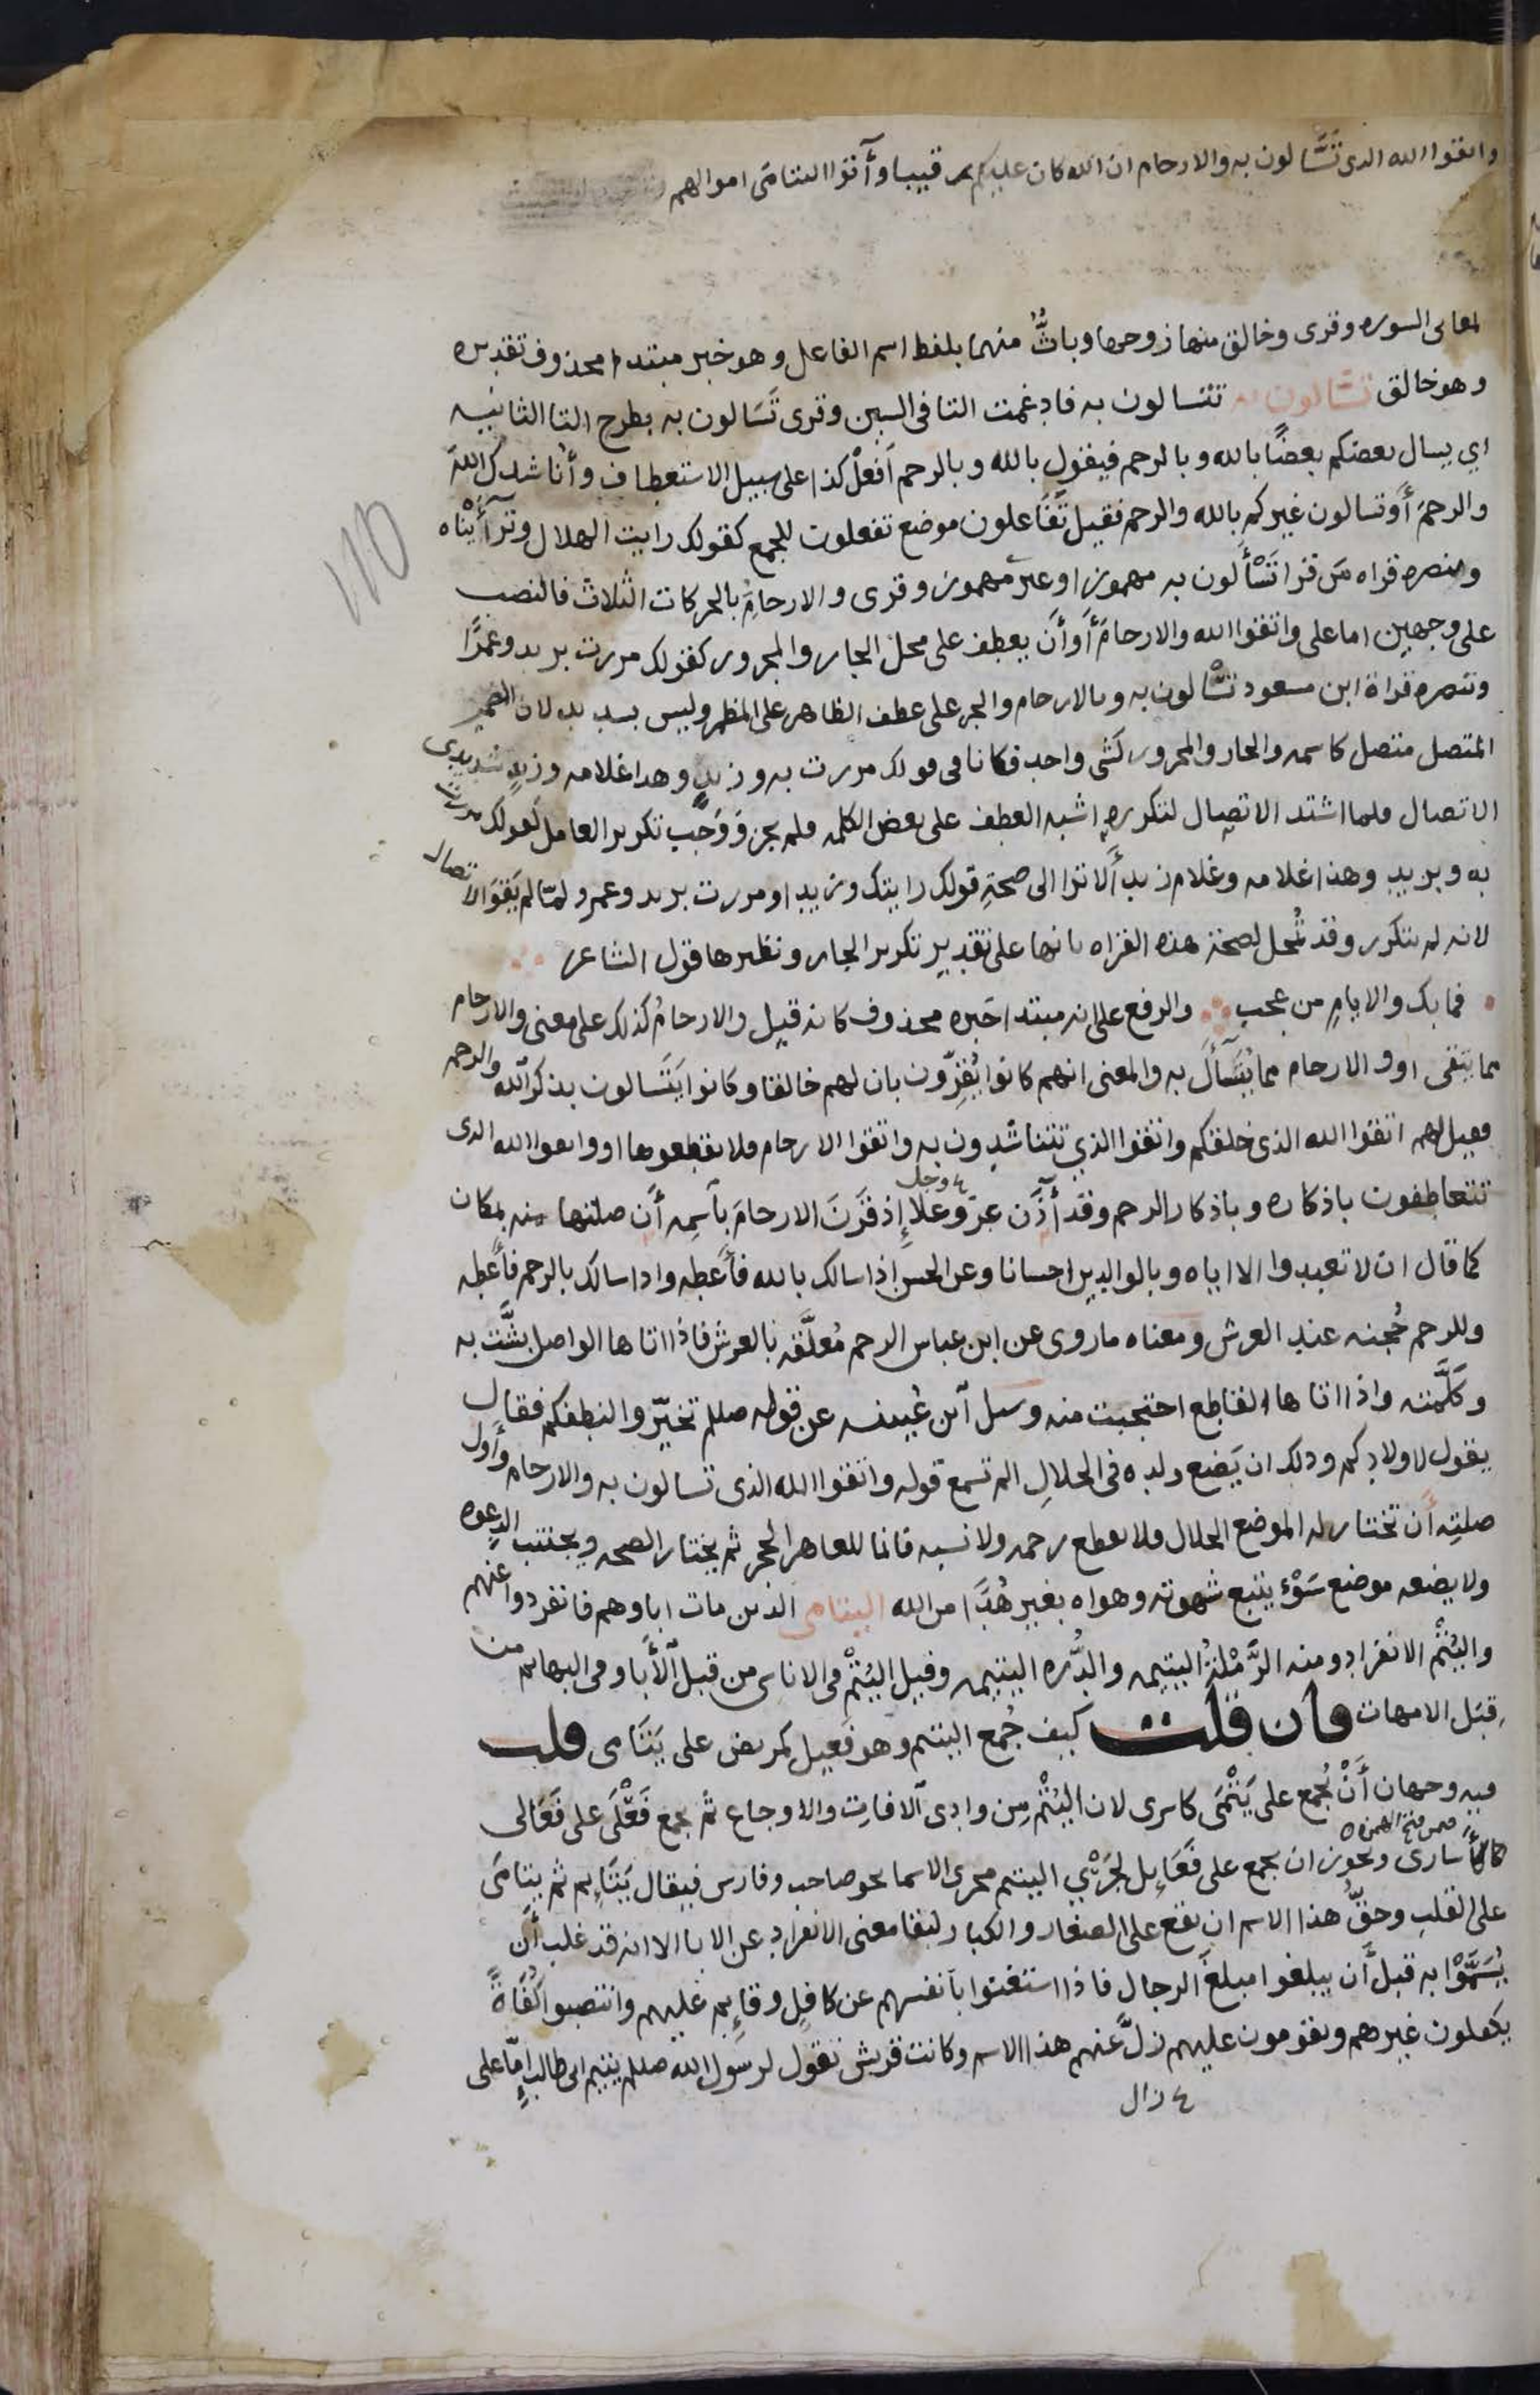 واتقوا الله الذى تَسَّالون به والارحام ان الله كان عليكم رقيبا وآتوا اليتامى اموالهم
لمعانى السوره وقرى وخالق منها زوجها وباثٌّ منهما بلفظ اسم الفاعل وهو خبر مبتدا محذوف تقديره
وهو خالق تسّالون به تتسالون به فادغمت التا فى السين وقرى تَسَالون به بطرح التا الثانيه
اي يسال بعضكم بعضًا بالله وبالرحم فيقول بالله وبالرحم اَفعلْ كذا على سبيل الاستعطاف وأناشدك اللهَ
والرحمَ أو تسالون غيركم بالله والرحم فقيل تَفَاعلون موضع تفعلون للجمع كقولك رايت الهلال وترآأيْناه
وينصره قراه مَن قرا تَسْأَلون به مهموز او غير مهموز وقرى والارحام بالحركات الثلاث فالنصب
على وجهين اما على واتقوا الله والارحامَ أو أن يعطف على محل الجار والمجرور كقولك مررت بزيد وعَمرًا
وتنصره قراة ابن مسعود تسْالون به وبالارحام والجر على عطف الظاهر على المظمر وليس بسديد لان الضمير
المتصل متصل كاسمه والجار والمجرور كشى واحد فكانا فى قولك مررت به وزيدٍ وهدا غلامه وزيدٍ شديدى
الاتصال فلما اشتد الاتصال لتكرره اشبه العطف على بعض الكلمه فلم يجز وَوَجَب تكرير العامل كقولك مررت
به وبزيد وهذا غلامه وغلام زيد أَلا ترا الى صحةِ قولك رايتك وزيدا ومررت بزيد وعمرو لمّا لم يَقوَ الاتصال
لانه لم يتكرر وقد تُمحل لصحة هذه القراه بانها على تقدير تكرير الجار ونظيرها قول الشاعر
فما بك والايامِ من عجب والرفع على انه مبتدا خبره محذوف كانه قيل والارحامُ كذلك على معنى والارحام
مما يتقى او والارحام مما يُتَسآأَل به والمعنى انهم كانوا يُقِرّون بان لهم خالقا وكانوا يَتَسالون بذكر الله والرحم
فقيل لهم اتقوا الله الذى خلقكم واتقوا الذي تتناشدون به واتقوا الارحام فلا تقطعوها او واتقوا الله الذى
تتعاطفون باذكاره وباذكار الرحم وقد آذَن عزّ وعلا إذ قَرَنَ الارحامَ بٱسمِه أَن صلتها منه بمكان
ع وجل
كما قال ان لا تعبدوا الا اياه وبالوالدين احسانا وعن الحسن اذا سالك بالله فأَعطه واذا سالك بالرحم فأَعطه
وللرحم حُجنه عند العرش ومعناه ما روى عن ابن عباس الرحم مُعلَّقه بالعرش فاذا اتاها الواصل بشَّت به
وكلَّمته واذا اتاها القاطع احتجبت منه وسيل ابن عُيينه عن قوله صلعم تخيّروا لنطفكم فقال
يقول لاولادكم وذلك ان يَضع ولده فى الحلالِ الم تسمع قوله واتقوا الله الذى تسالون به والارحام وأول
صلتِه أَن تختار له الموضع الحلال فلا يقطع رحمه ولا نسبه فانما للعاهر الحجر ثم يختار الصحه ويجتنب الدِعوه
ولا يضعه موضع سَوْءٍ يتبع شهوته وهواه بغير هُدًا من الله اليتامى الذين مات اباوهم فانفردوا عنهم
واليُتْم الانفراد ومنه الرَّمْلةُ اليتيمه والدُّره اليتيمه وقيل اليُتْم فى الاناسى من قِبَل الآبا وفى البهايم من
قِبَل الامهات فان قلت كيف جُمع اليتيم وهو فَعِيل كمريض على يَتَامى قلت
فيه وجهان أَنْ يُجمع على يَتْمَى كاسرى لان اليُتْم مِن وادى الآفات والاوجاع ثم يجمع فَعْلَى على فَعَالى
فمن فتح الهمزه
كأَسارى ويجوز ان يجمع على فَعَايِل لجَرْيِ اليتيم مجرى الاسما نحو صاحب وفارس فيقال يَتَايِم ثم يتامَى
على القلبِ وحقُّ هذا الاسم ان يقع على الصغار والكبار لبقا معنى الانفراد عن الابا الا انه قد غلب أن
يُسَمَّوْا به قبل أَن يبلغوا مبلغَ الرجال فاذا استغنوا بأنفسهم عن كافلٍ وقايِم عليهم وانتصبوا كُفَاةً
يكفلون غيرهم ويقومون عليهم زلَّ عنهم هذا الاسم وكانت قريش تقول لرسول الله صلعم يتيم ابى طالب إمّا على
ع زال